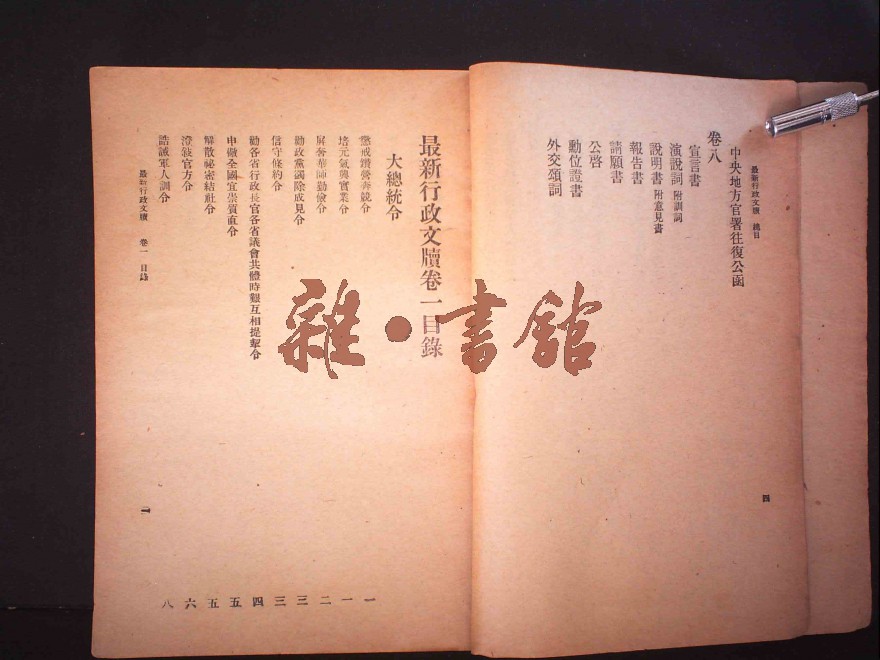 最新行政文牘 總目
中央地方官署往復公函
卷八
宣言書
演說詞 附訓詞
說明書 附意見書
報告書
請願書
公啓
勳位證書
外交頌詞
四
最新行政文牘卷一目錄
大總統令
懲戒鑽營奔競令 一
培元氣興實業令 一
屏奢華師勤儉令 二
勸政黨蠲除成見令 三
信守條約令 三
勸各省行政長官各省議會共體時艱互相提挈令 四
申儆全國宜崇質直令 五
解散祕密結社令 五
澄敍官方令 六
誥誡軍人訓令 八
最新行政文牘 卷一 目錄
一
雜·書館